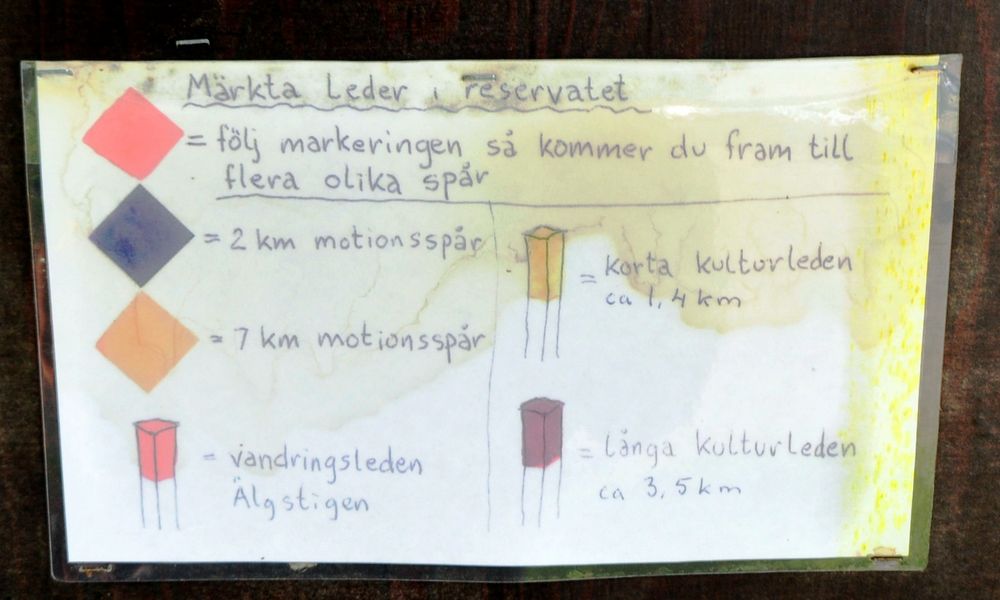 Märkta Leder i reservatet
= följ markeringen så kommer du fram till
flera olika spår
= 2 km motionsspår
= 7 km motionsspår
= vandringsleden
Älgstigen
= Korta kulturleden
ca 1,4 km
= Långa kulturleden
ca 3,5 km